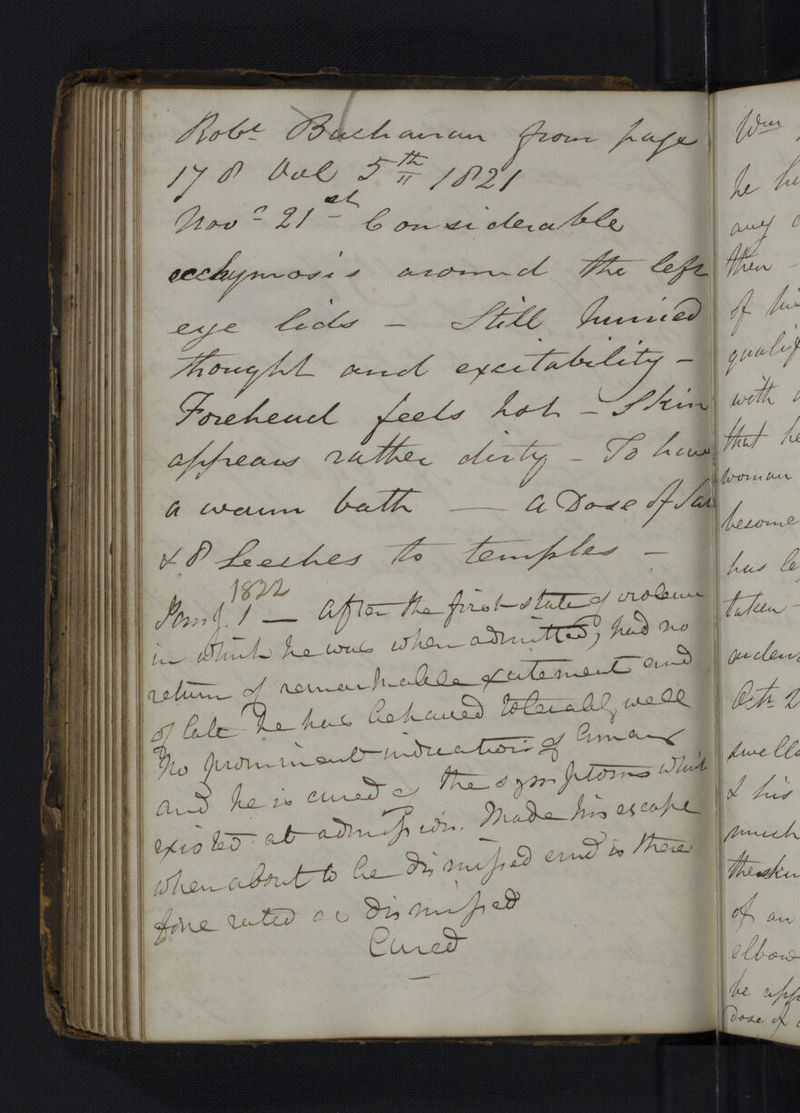 Robt Buchanan from page
178 Vol 5th 1821
Novr 21st Considerable
ecchymosis around the left
eye lids - Still hurried
thought and excitability -
Forehead feels hot - Skin
appears rather dirty - To have
a warm bath — a Dose of
& 8 Leeches to temples -
1822
1 — After the first state of violence
in which he was when admitted, had no
return of remarkable excitement and
of late he has behaved tolerably well
No prominent indication of
and he is cured of the symptoms which
existed at admission. Made his escape
when about to be dismissed and is there
fore rated as dismissed
Cured
Wm
he
any
then
of
with
that he
woman
become
has
taken
Oct
& his
much
of an
elbow
be
Dose of